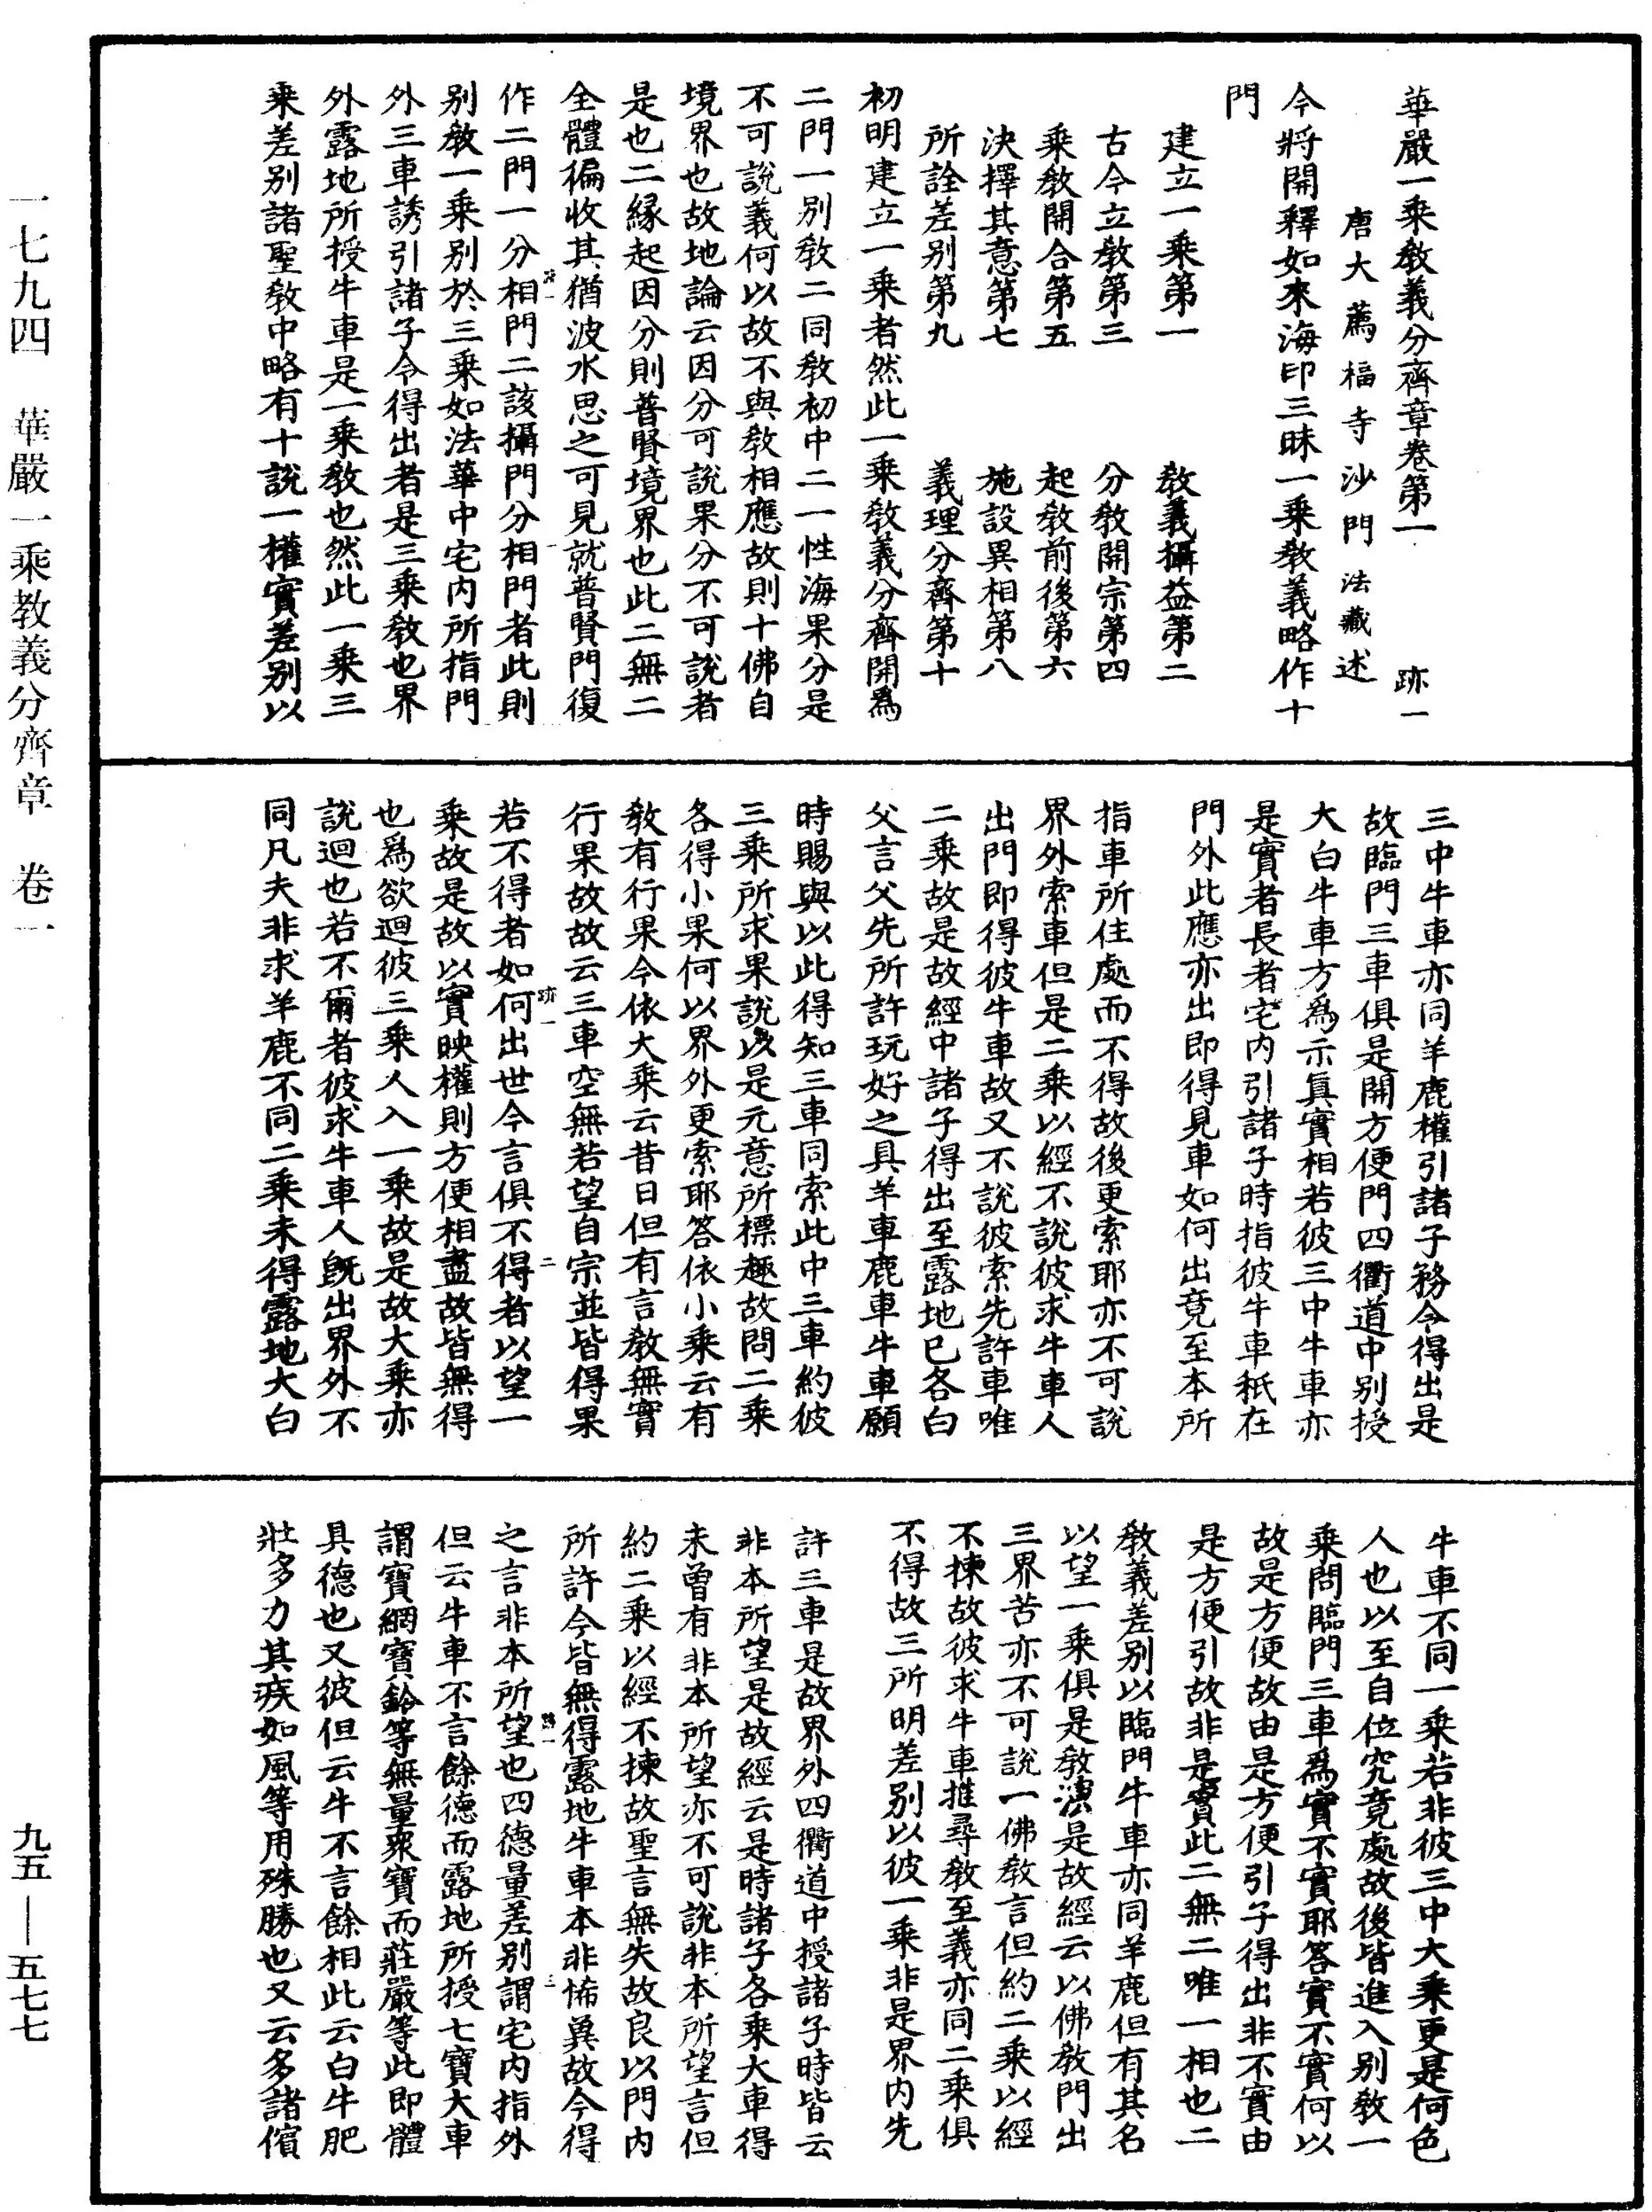 華嚴一乘教義分齊章卷第一　跡一
唐大薦福寺沙門法藏述
今將開釋如來海印三昧一乘教義略作十
門
建立一乘第一　教義攝益第二
古今立教第三　分教開宗第四
乘教開合第五　起教前後第六
決擇其意第七　施設異相第八
所詮差别第九　義理分齊第十
初明建立一乘者然此一乘教義分齊開爲
二門一别教二同教初中二一性海果分是
不可說義何以故不與教相應故則十佛自
境界也故地論云因分可說果分不可說者
是也二緣起因分則普賢境界也此二無二
全體徧收其猶波水思之可見就普賢門復
作二門一分相門二該攝門分相門者此則
别教一乘别於三乘如法華中宅内所指門
外三車誘引諸子令得出者是三乘教也界
外露地所授牛車是一乘教也然此一乘三
乘差别諸聖教中略有十說一權實差别以
三中牛車亦同羊鹿權引諸子務令得出是
故臨門三車俱是開方便門四衢道中别授
大白牛車方爲示眞實相若彼三中牛車亦
是實者長者宅内引諸子時指彼牛車秖在
門外此應亦出即得見車如何出竟至本所
指車所住處而不得故後更索耶亦不可說
界外索車但是二乘以經不說彼求牛車人
出門即得彼牛車故又不說彼索先許車唯
二乘故是故經中諸子得出至露地已各白
父言父先所許玩好之具羊車鹿車牛車願
時賜與以此得知三車同索此中三車約彼
三乘所求果說以是元意所標趣故問二乘
各得小果何以界外更索耶答依小乘云有
教有行果今依大乘云昔日但有言教無實
行果故故云三車空無若望自宗並皆得果
若不得者如何出世今言俱不得者以望一
乘故是故以實映權則方便相盡故皆無得
也爲欲迴彼三乘人入一乘故是故大乘亦
說迴也若不爾者彼求牛車人旣出界外不
同凡夫非求羊鹿不同二乘未得露地大白
牛車不同一乘若非彼三中大乘更是何色
人也以至自位究竟處故後皆進入别教一
乘問臨門三車爲實不實耶答實不實何以
故是方便故由是方便引子得出非不實由
是方便引故非是實此二無二唯一相也二
教義差别以臨門牛車亦同羊鹿但有其名
以望一乘俱是教演是故經云以佛教門出
三界苦亦不可說一佛教言但約二乘以經
不揀故彼求牛車推尋教至義亦同二乘俱
不得故三所明差别以彼一乘非是界内先
許三車是故界外四衢道中授諸子時皆云
非本所望是故經云是時諸子各乘大車得
未曾有非本所望亦不可說非本所望言但
約二乘以經不揀故聖言無失故良以門内
所許今皆無得露地牛車本非悕冀故今得
之言非本所望也四德量差别謂宅内指外
但云牛車不言餘德而露地所授七寶大車
謂寶網寶鈴等無量衆寶而莊嚴等此即體
具德也又彼但云牛不言餘相此云白牛肥
壯多力其疾如風等用殊勝也又云多諸儐
一七九四　華嚴一乘教義分齊章　卷一
九五—五七七